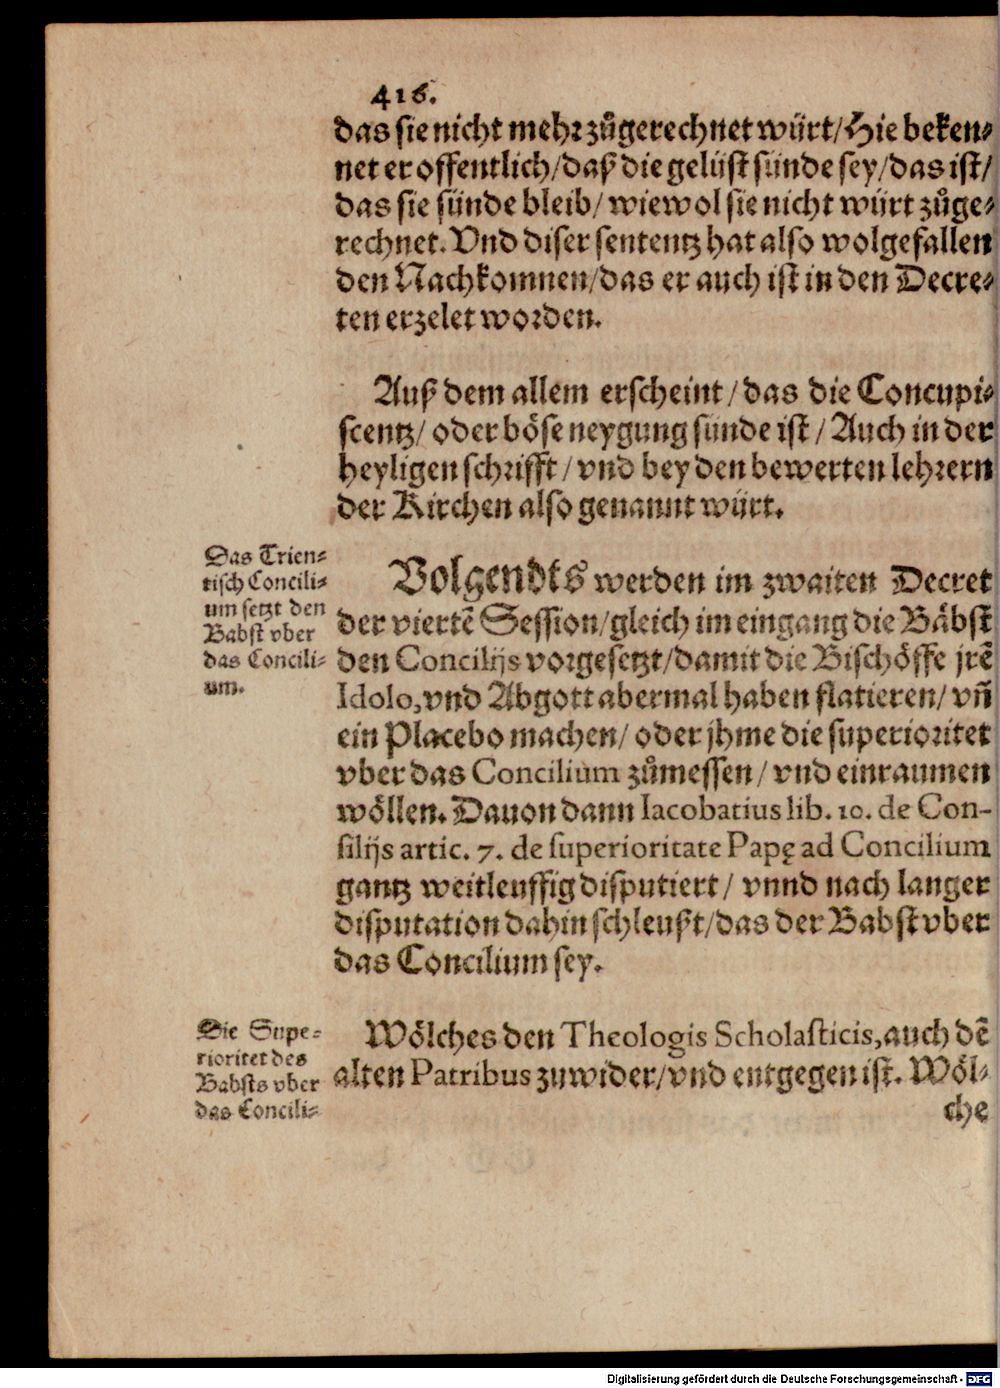 416.
das sie nicht mehr zůgerechnet würt/Hie beken⸗
net er offentlich/daß die gelüst sünde sey/das ist/
das sie sünde bleib/ wiewol sie nicht würt zůge⸗
rechnet. Vnd diser sententz hat also wolgefallen
den Nachkomnen/das er auch ist in den Decre⸗
ten erzelet worden.
Auß dem allem erscheint/das die Concupi⸗
scentz/ oder böse neygung sünde ist/ Auch in der
heyligen schrifft/vnd bey den bewerten lehrern
der Kirchen also genannt würt.
Das Trien⸗
tisch Concili⸗
um setzt den
Babst vber
das Concili⸗
um.
Volgendts werden im zwaiten Decret
der viertẽ Session/gleich im eingang die Bäbst
den Concilijs vorgesetzt/damit die Bischöffe jrẽ
Idolo, vnd Abgott abermal haben flatieren/ vñ
ein Placebo machen/ oder jhme die superioritet
vber das Concilium zůmessen/ vnd einraumen
wöllen. Dauon dann Iacobatius lib. 10. de Con-
silijs artic. 7. de superioritate Papę ad Concilium
gantz weitleuffig disputiert/ vnnd nach langer
disputation dahin schleußt/das der Babst vber
das Concilium sey.
Die Supe⸗
rioritet des
Babsts vber
das Concili⸗
Wölches den Theologis Scholasticis, auch dẽ
alten Patribus zuwider/vnd entgegen ist. Wöl⸗
che
Digitalisierung gefördert durch die Deutsche Forschungsgemeinschaft - DFG